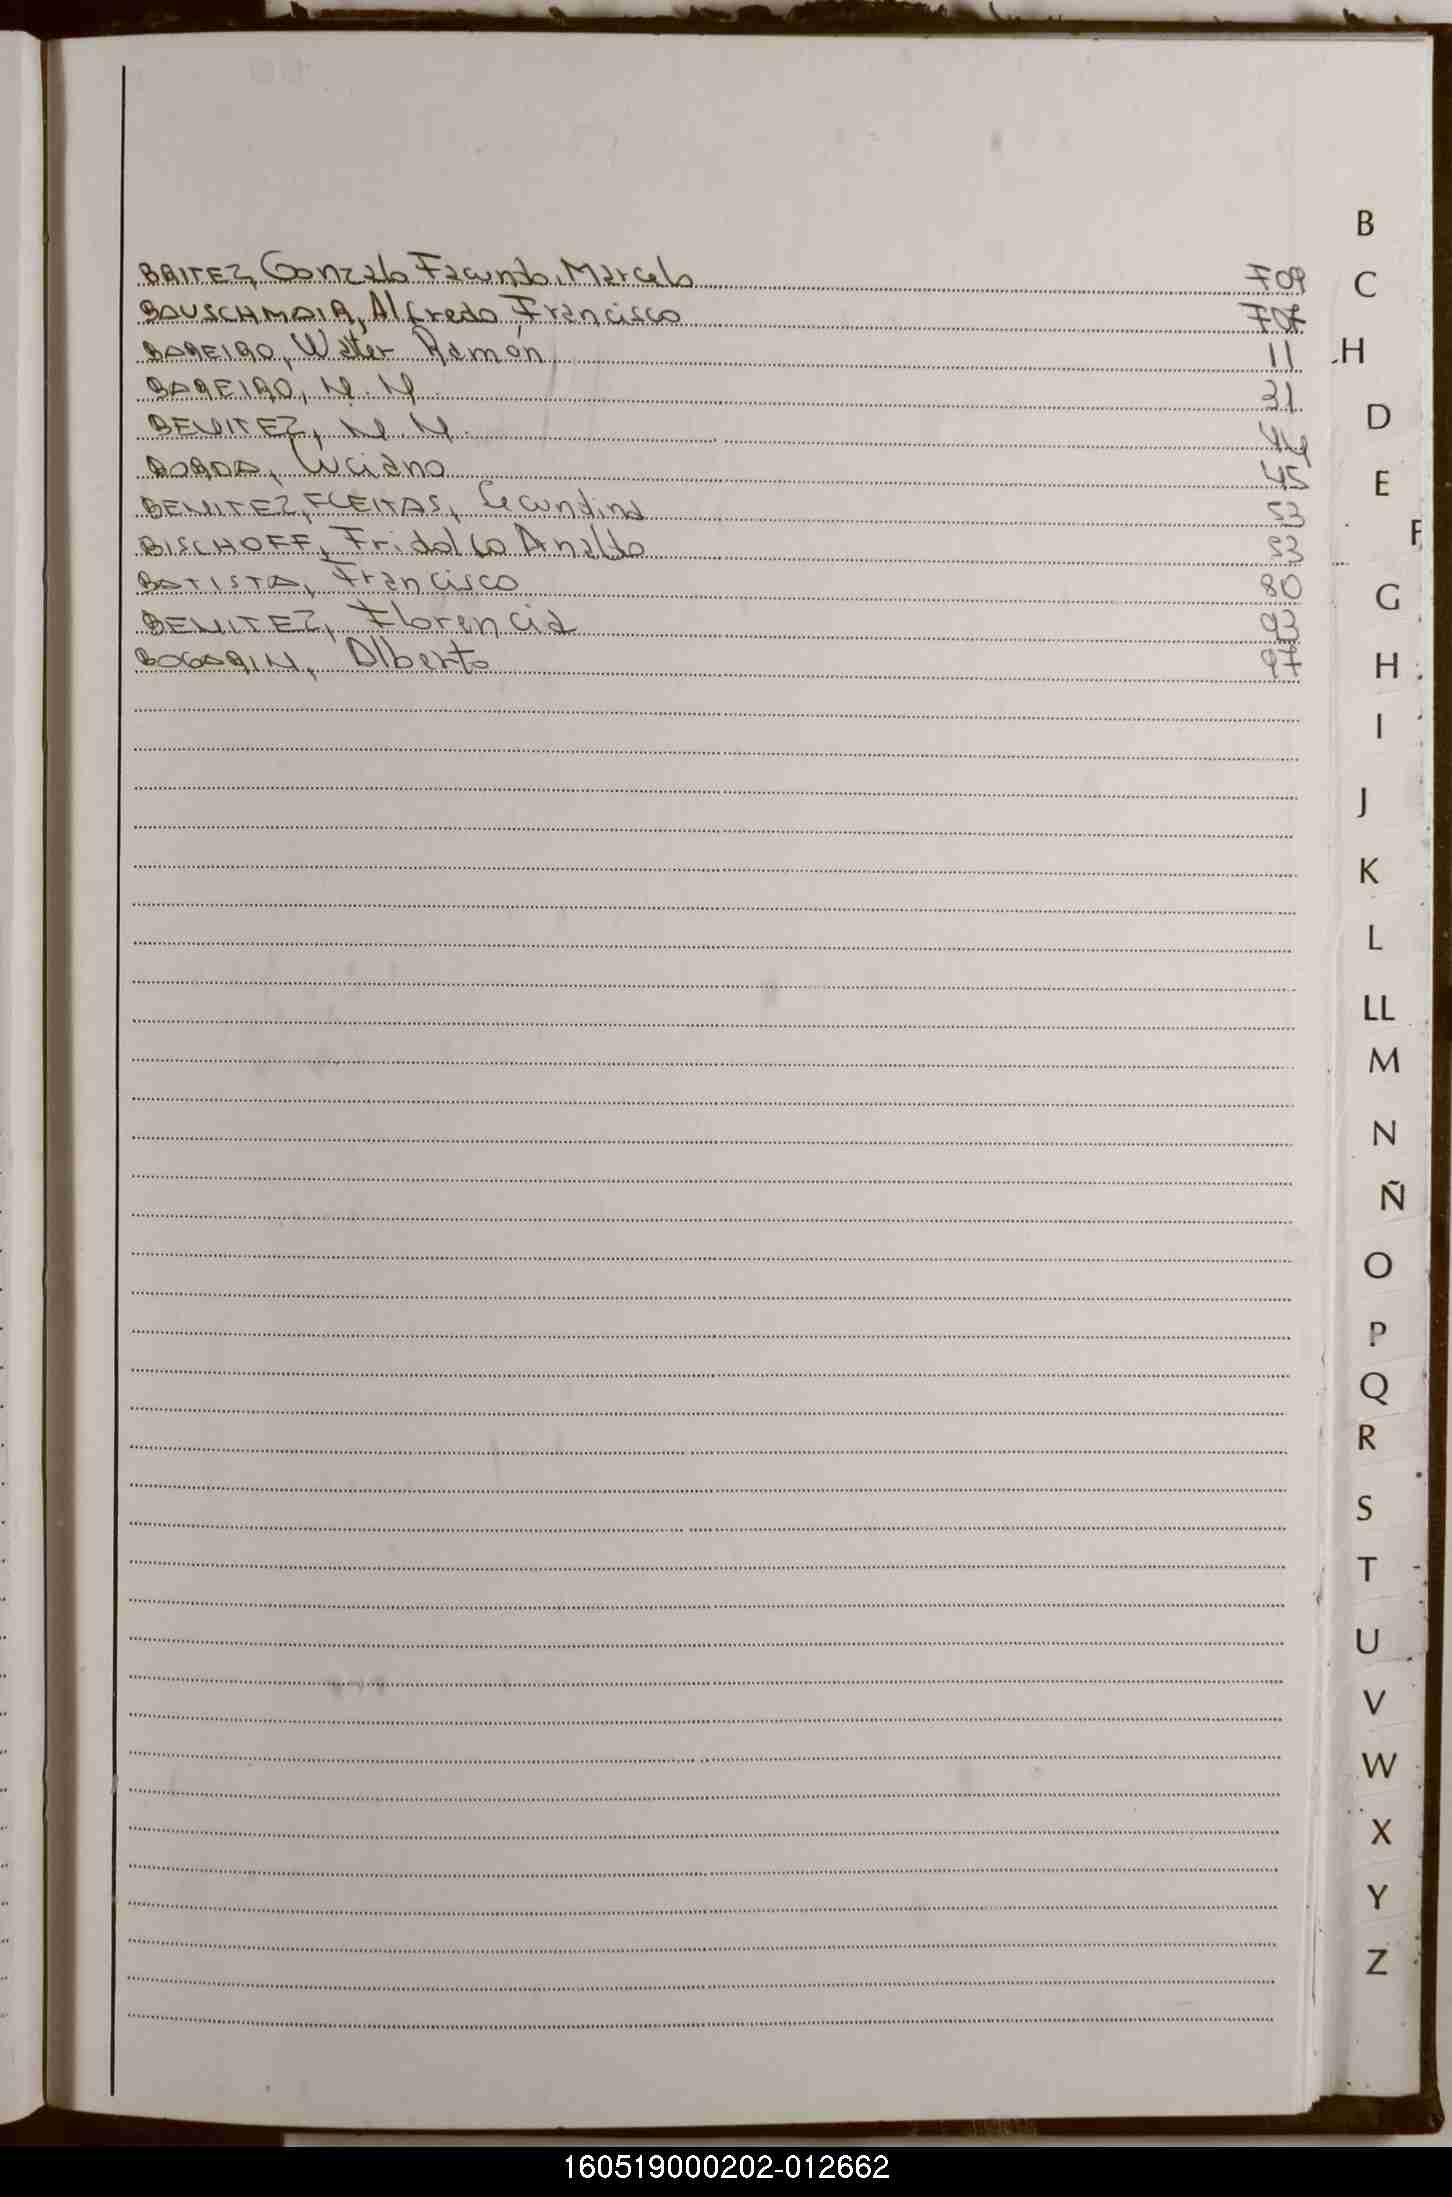 BRITEZ, Gonzalo Facundo, Marcelo 709
BAUSCHMAIR, Alfredo Francisco 707
BAREIRO, Walter Ramón 11
BAREIRO, N.N. 31
BENITEZ, N.N. 44
BORDA, Luciano 45
BENITEZ, FLEITAS, Secundina 53
BISCHOFF, Fridolfo Analdo 53
BATISTA, Francisco 80
BENITEZ, Florencia 93
BOGARIN, Alberto 97
B
C
H
D
E
F
G
H
I
J
K
L
LL
M
N
Ñ
O
P
Q
R
S
T
U
V
W
X
Y
Z
160519000202-012662